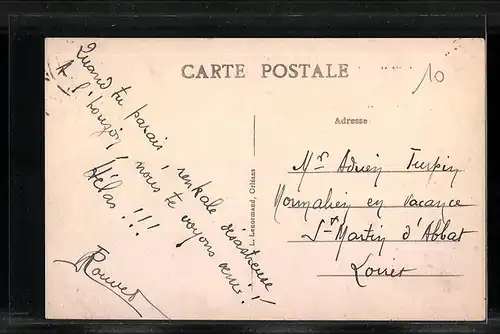 CARTE POSTALE
10
Quand tu parais, rentrale désastreuse!
A l'horizon nous te voyons venir!
Hélas!!!
Rouvet
L. Lenormand, Orléans
Adresse
Mr Adrien Turpin
Normalien en vacance
St Martin d'Abbat
Loiret